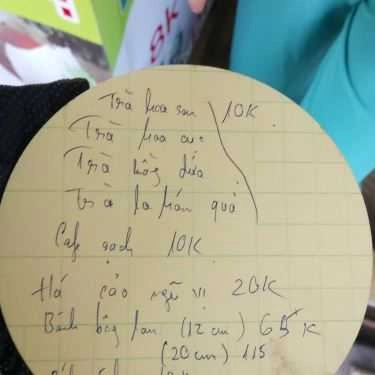 SK
Trà hoa sen 10K
Trà hoa cúc
Trà hồng đào
Trà la hán quả
Cafe sạch 10K
Há cảo ngũ vị 20K
Bánh bông lan (12 cm) 65K
(20 cm) 115